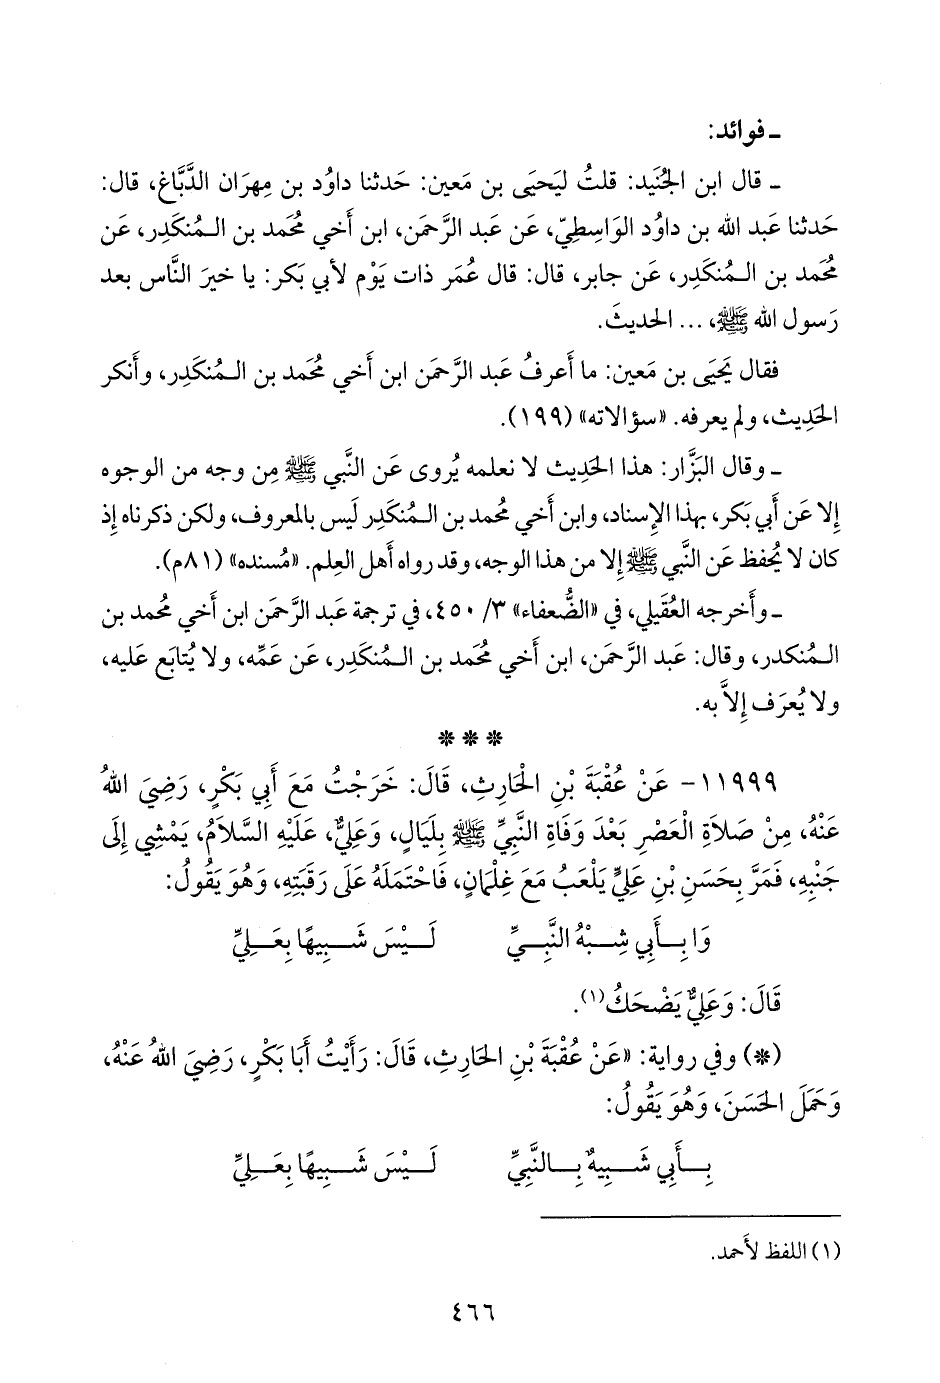 ـ فوائد:
ـ قال ابن الجُنَيد: قلتُ ليَحيَى بن مَعين: حَدثنا داوُد بن مِهران الدَّبَّاغ، قال:
حَدثنا عَبد الله بن داوُد الوَاسِطيّ، عَن عَبد الرَّحمَن، ابن أَخي مُحمد بن الـمُنكَدِر، عَن
مُحمد بن الـمُنكَدِر، عَن جابر، قال: قال عُمَر ذات يَوْم لأَبي بَكر: يا خيرَ النَّاس بعد
رَسول الله ﷺ، ... الحَديثَ.
فقال يَحيَى بن مَعين: ما أَعرفُ عَبد الرَّحمَن ابن أَخي مُحمد بن الـمُنكَدِر، وأَنكر
الحَدِيث، ولم يعرفه. «سؤالاته» (١٩٩).
ـ وقال البَزَّار: هذا الحَديث لا نعلمه يُروى عَن النَّبي ﷺ مِن وجه من الوجوه
إِلا عَن أَبي بَكر، بهذا الإِسناد، وابن أَخي مُحمد بن الـمُنكَدِر لَيس بالمعروف، ولكن ذكرناه إِذ
كان لا يُحفظ عَن النَّبي ﷺ إِلا من هذا الوجه، وقد رواه أَهل العِلم. «مُسنده» (٨١م).
ـ وأَخرجه العُقَيلي، في «الضُّعفاء» ٣/ ٤٥٠، في ترجمة عَبد الرَّحمَن ابن أَخي مُحمد بن
الـمُنكدر، وقال: عَبد الرَّحمَن، ابن أَخي مُحمد بن الـمُنكَدِر، عَن عَمِّه، ولا يُتابَع عَليه،
ولا يُعرَف إِلاَّ به.
* * *
١١٩٩٩- عَنْ عُقْبَةَ بْنِ الْحَارِثِ، قَالَ: خَرَجْتُ مَعَ أَبِي بَكْرٍ، رَضِيَ اللهُ
عَنْهُ، مِنْ صَلاَةِ الْعَصْرِ بَعْدَ وَفَاةِ النَّبِيِّ ﷺ بِلَيَالٍ، وَعَلِيٌّ، عَلَيْهِ السَّلاَمُ، يَمْشِي إِلَى
جَنْبِهِ، فَمَرَّ بِحَسَنِ بْنِ عَلِيٍّ يَلْعَبُ مَعَ غِلْمَانٍ، فَاحْتَمَلَهُ عَلَى رَقَبَتِهِ، وَهُوَ يَقُولُ:
وَا بِـأَبِي شِـبْهُ النَّبِـيِّ لَـيْسَ شَـبِيهًا بِعَـلِيِّ
قَالَ: وَعَلِيٌّ يَضْحَكُ(١).
(*) وفي رواية: «عَنْ عُقْبَةَ بْنِ الحَارِثِ، قَالَ: رَأَيْتُ أَبَا بَكْرٍ، رَضِيَ اللهُ عَنْهُ،
وَحَمَلَ الحَسَنَ، وَهُوَ يَقُولُ:
بِـأَبِي شَـبِيهٌ بِـالنَّبِيِّ لَـيْسَ شَـبِيهًا بِعَـلِيِّ
(١) اللفظ لأَحمد.
٤٦٦